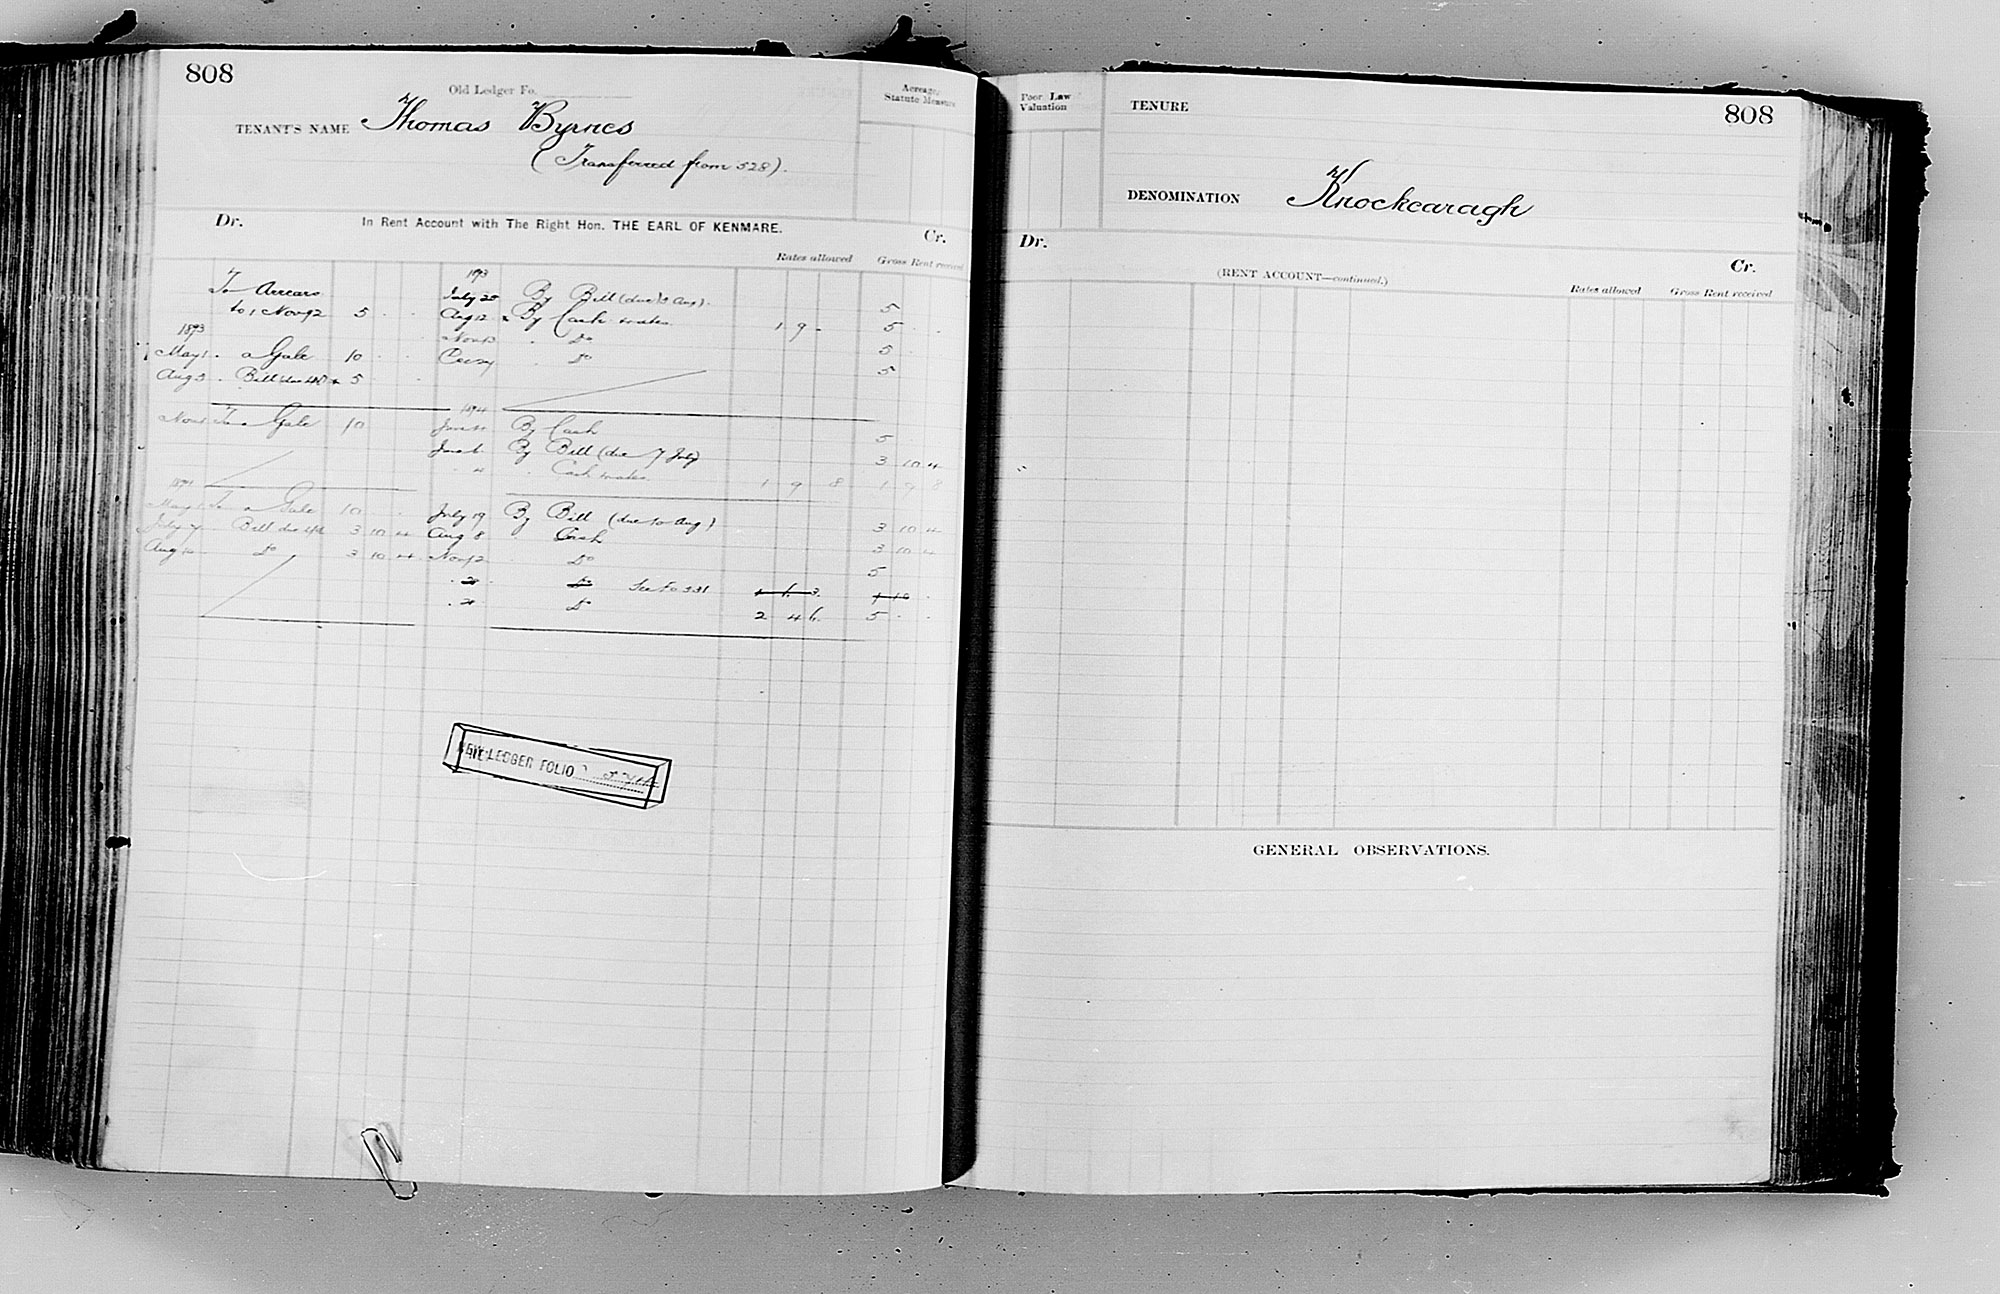 808
Old Ledger Fo.
Acreage,
Statute Measure
TENANT'S NAME Thomas Byrnes
(Transferred from 528).
Dr. In Rent Account with The Right Hon. THE EARL OF KENMARE. Cr.
Rates allowed Gross Rent received
1893
To Arrears July 20 By Bill (due 3 Aug). 5
to 1 Nov 92 5 Aug 12 By Cash & rates 1 9 - 5
1893 Nov 13 Do 5
May 1 a Gale 10 Do 5
Aug 3 Bill due 5
1894
Nov 1 To a Gale 10 By Cash 5
June 6 By Bill (due 7 July) 3 10 4
" 4 Cash & rates 1 9 8 1 9 8
1894
May 1 To a Gale 10 July 19 By Bill (due 10 Aug) 3 10 4
July 7 Bill due 3 10 4 Aug 8 Cash 3 10 4
Aug 10 Do 3 10 4 Nov 12 Do 5
Do See Fo 331
Do 2 4 6 5
NEW LEDGER FOLIO
Poor Law
Valuation
TENURE 808
DENOMINATION Knockcaragh
Dr. Cr.
(RENT ACCOUNT—continued.)
Rates allowed Gross Rent received
GENERAL OBSERVATIONS.